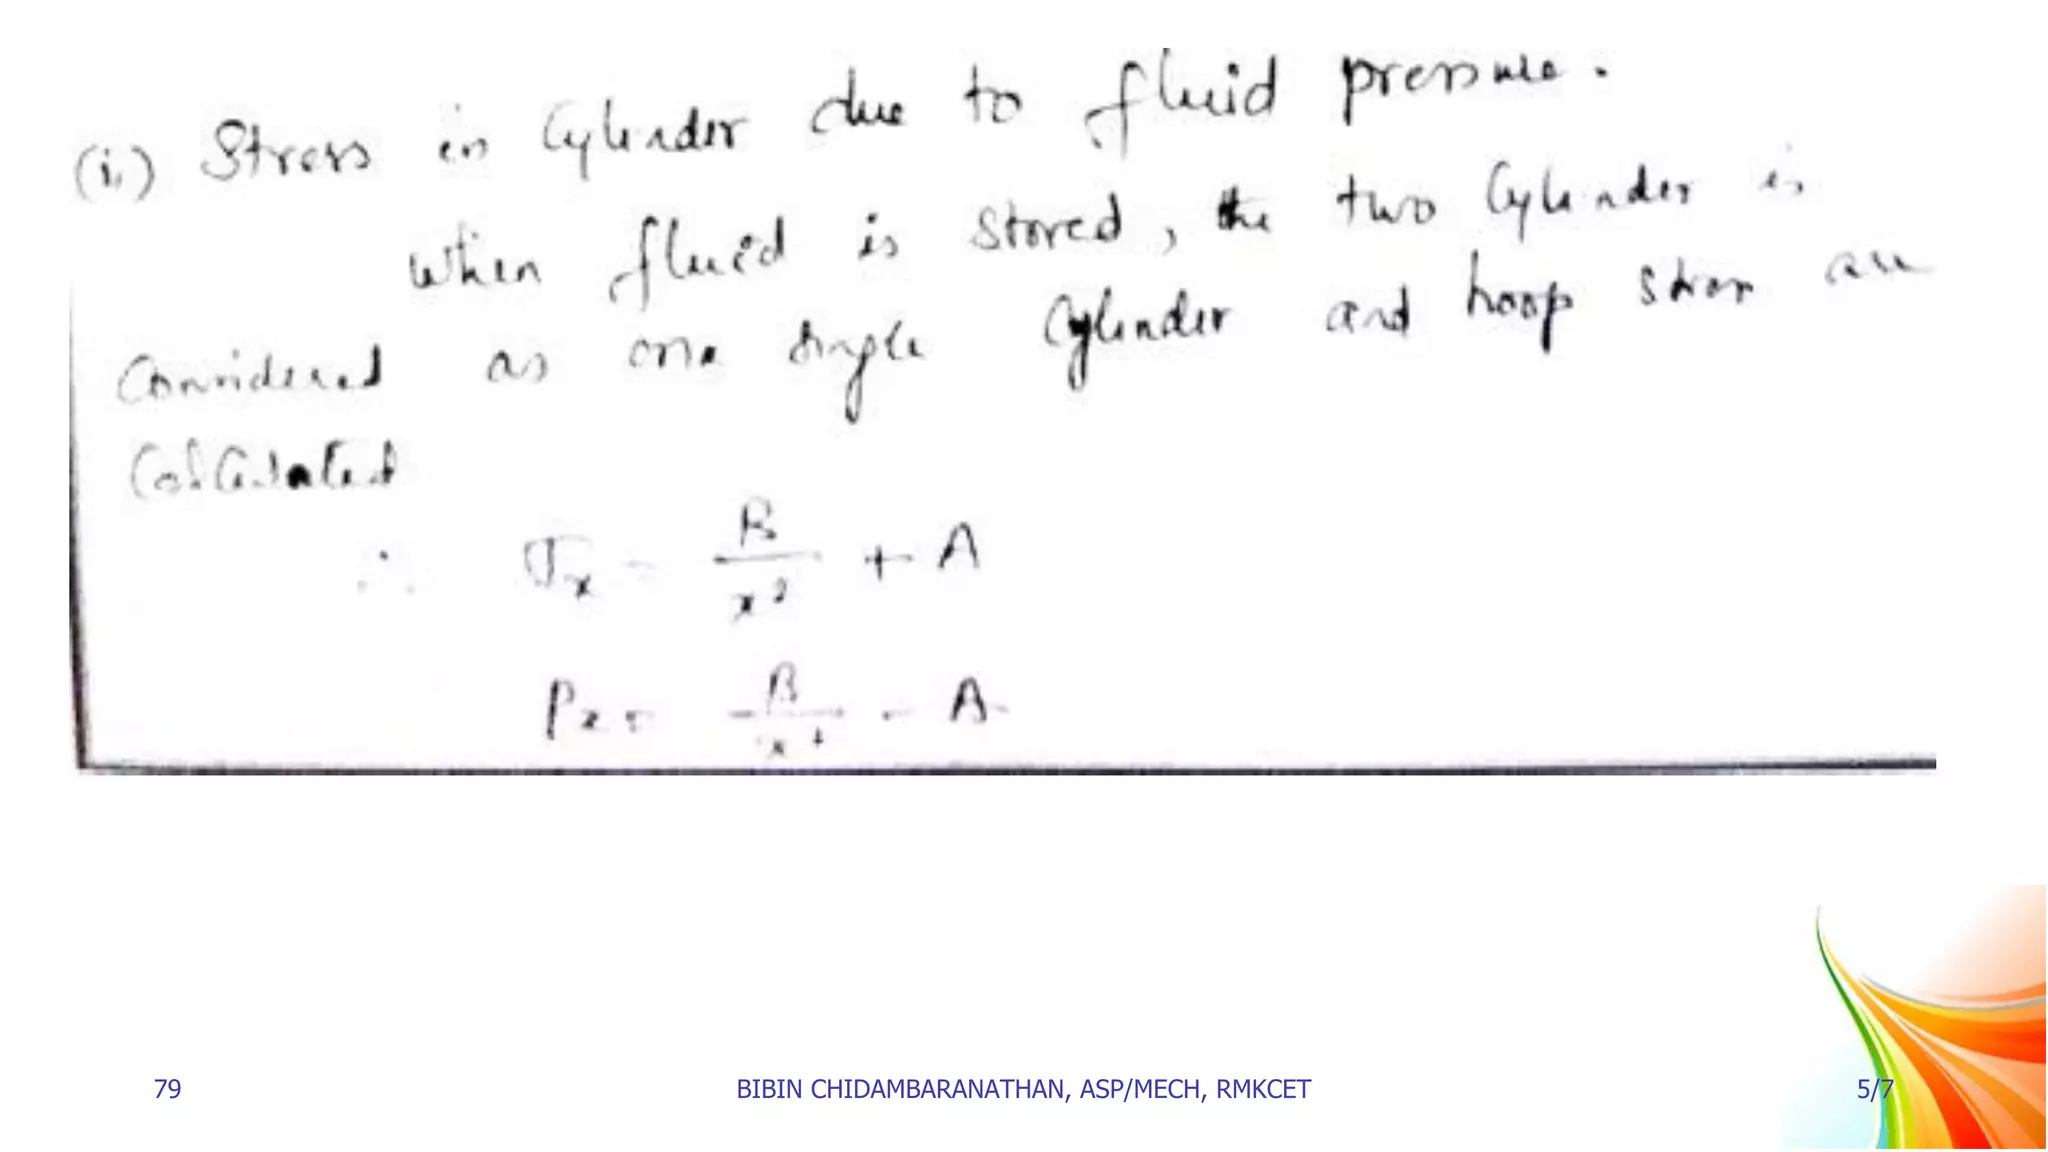 (i.) Stress in Cylinder due to fluid pressure.
When fluid is stored, the two Cylinder is
Considered as one single Cylinder and hoop stress are
Calculated
∴ σx = B/x² + A
Px = B/x² - A
79 BIBIN CHIDAMBARANATHAN, ASP/MECH, RMKCET 5/7